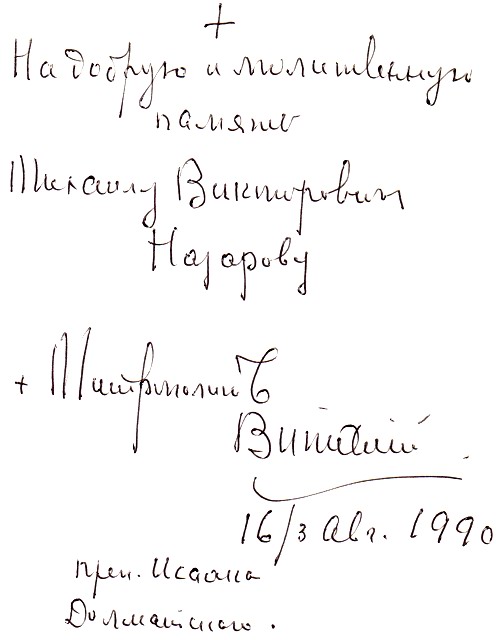 +
На добрую и молитвенную
память
Михаилу Викторовичу
Назарову
+ Митрополитъ
Виталий
16/3 Авг. 1990
преп. Исаака
Долматского.